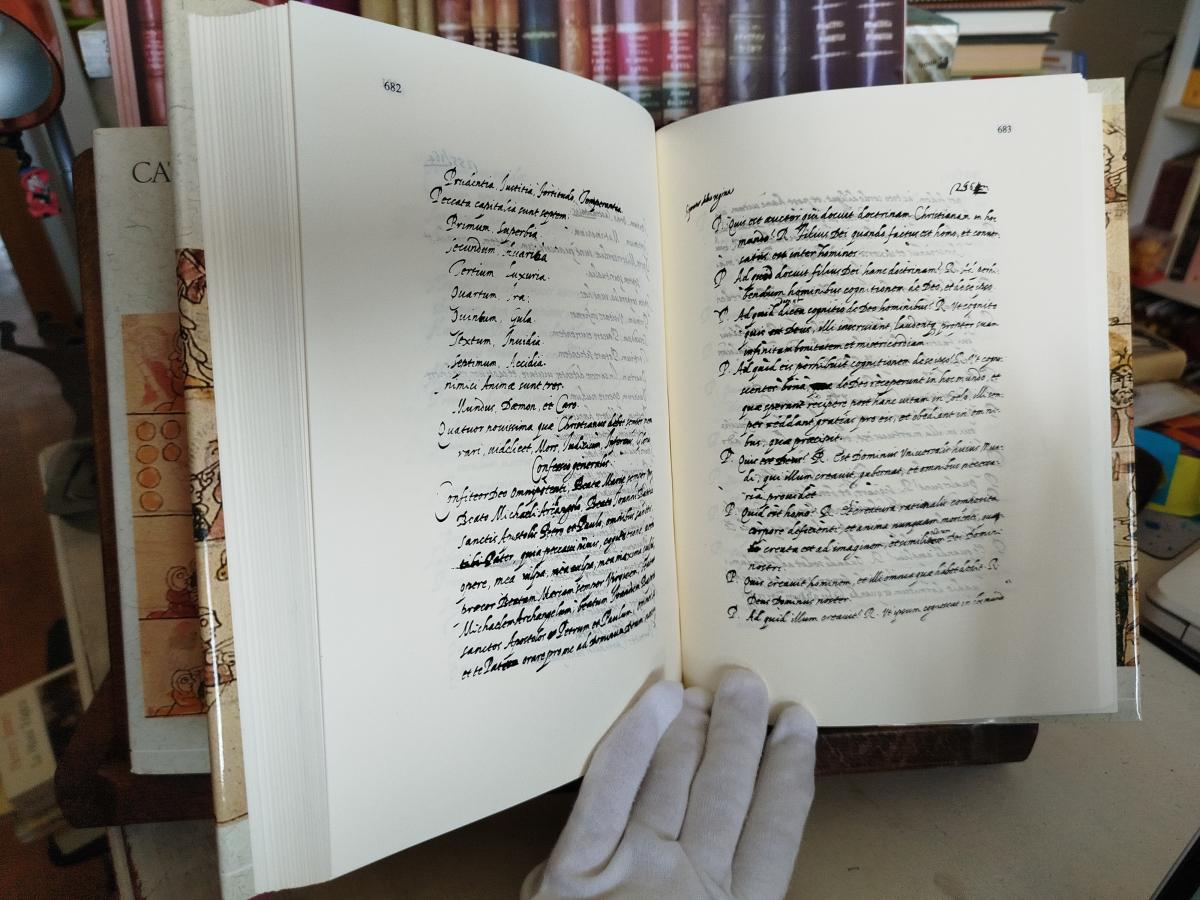 CA
682
Prudentia, Iustitia, fortitudo, Temperantia
Peccata capitalia sunt septem.
Primum, Superbia.
Secundum Avaritia
Tertium Luxuria.
Quartum Ira.
Quintum, Gula.
Sextum, Invidia
Septimum, Accidia.
nimici Animæ sunt tres.
Mundus, Dæmon, et Caro.
Quatuor novissima quæ Christianus debet
rari, videlicet, Mors, Iudicium, Infernus, Gloria
Confessio generalis.
Confiteor Deo omnipotenti, Beatæ Mariæ semper
Beato Michaeli Arcangelo, Beato Ioanni
sanctis Apostolis Petro et Paulo, omnibus sanctis
tibi Pater, quia peccavi nimis, cogitatione
opere, mea culpa, mea culpa, mea maxima culpa
præcor Beatam Mariam semper Virginem,
Michaelem Archangelum, beatum Ioannem
sanctos Apostolos Petrum et Paulum,
et te Pater orare pro me ad Dominum
683
P. Quis est auctor qui docuit doctrinam Christianam in hoc
mundo? R. Filius Dei quando factus est homo, et conver-
satus est inter homines.
P. Ad quid docuit filius Dei hanc doctrinam? R. Ad
bendum hominibus cognitionem de Deo, et de se ipso.
P. Ad quid dicta cognitio de Deo hominibus? R. Ut cognito
quis est Deus, illi inserviant, laudent propter suam
infinitam bonitatem et misericordiam.
P. Ad quid eis cognitionem de se ipso? R. Ut
bona de Deo receperunt in hoc mundo, et
quæ sperant recipere post hanc vitam in Cælo, illi sem-
per reddant gratias pro eis, et obediant in omni-
bus, quæ præcipit.
P. Quis est Deus? R. Est Dominus Universalis huius Mun-
di, qui illum creavit, gubernat, et omnibus necessa-
ria providet
P. Quid est homo? R. Creatura rationalis composita
corpore deficienti, et anima nunquam
creata est ad imaginem, et similitudinem Domini
nostri.
P. Quis creavit hominem, et illi omnia quæ habet dedit? R.
Deus Dominus noster.
P. Ad quid illum creavit? R. Ut ipsum cognoscat in hoc mundo